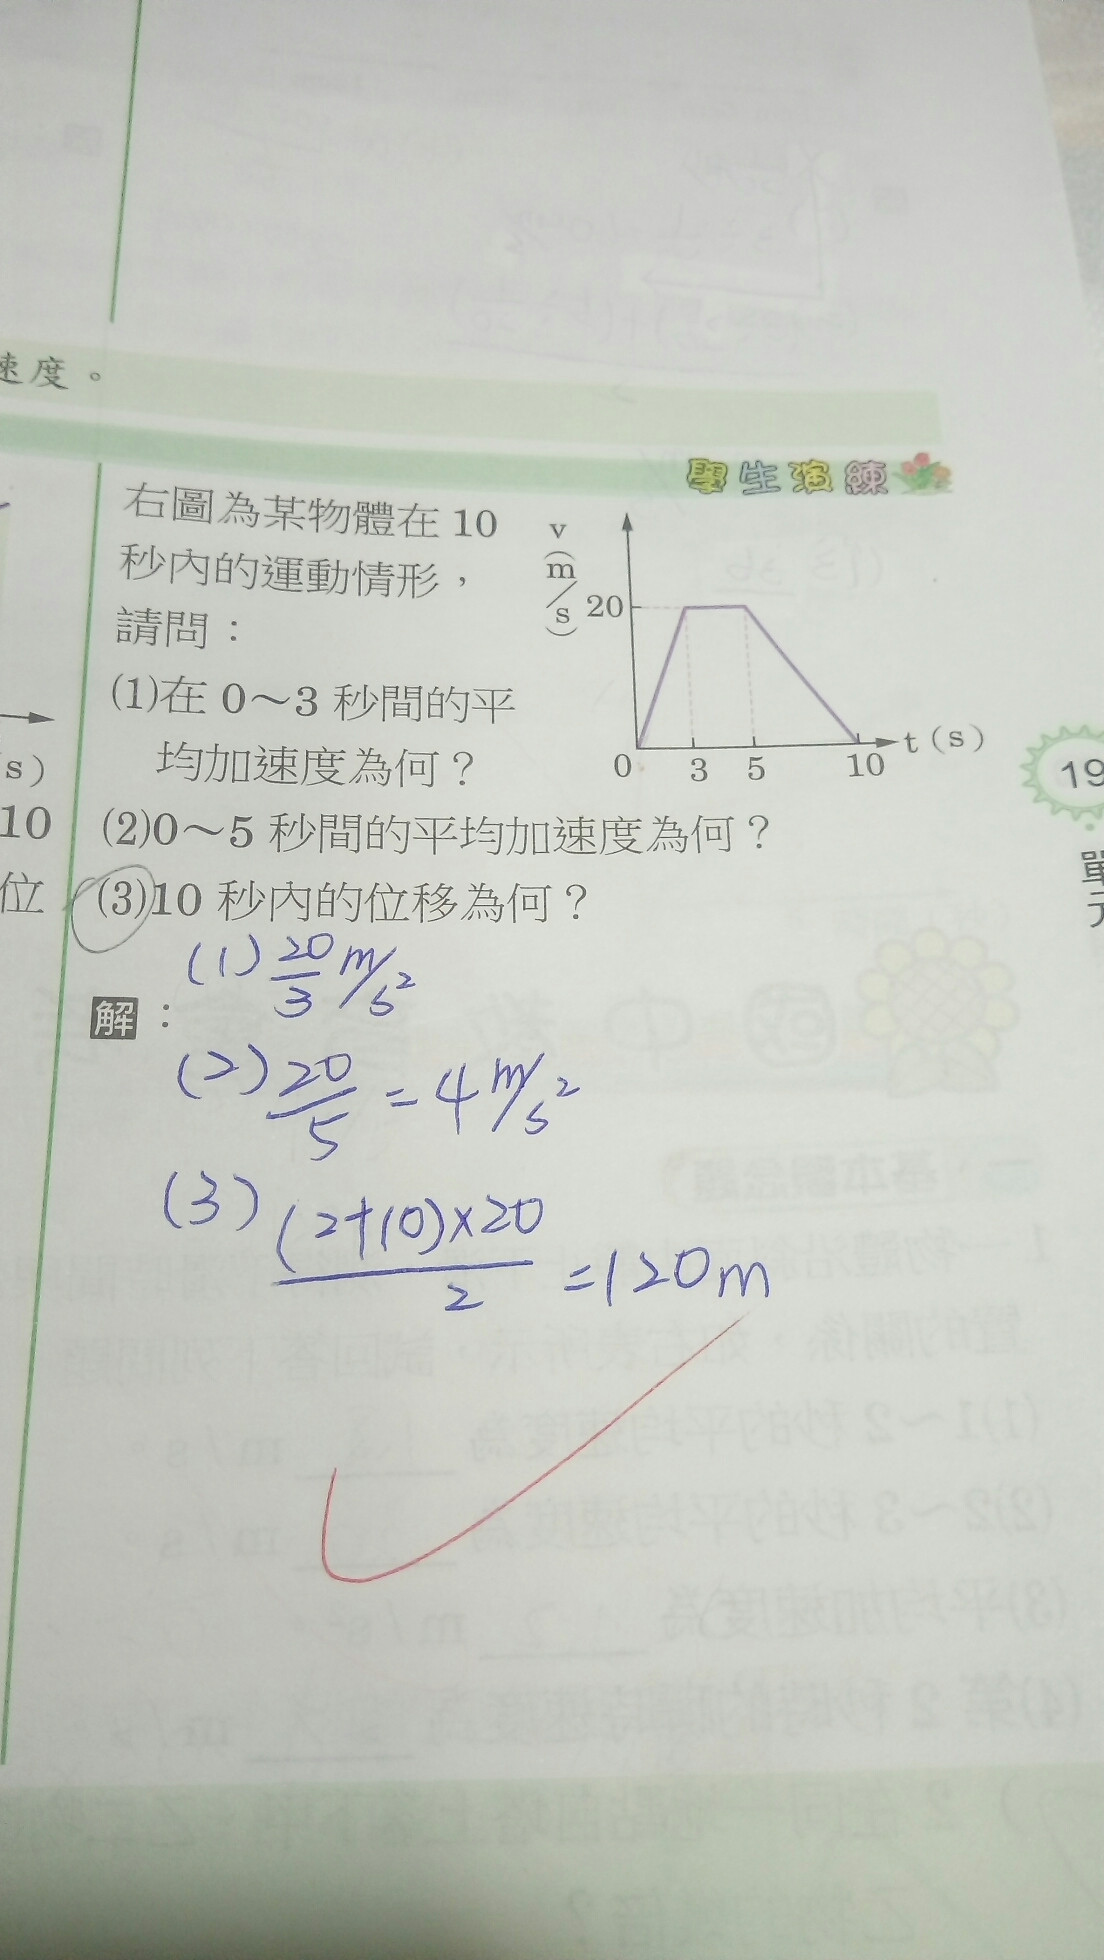 速度。
學生演練
右圖為某物體在 10
秒內的運動情形，
請問：
(1)在 0～3 秒間的平
均加速度為何？
(2)0～5 秒間的平均加速度為何？
(3)10 秒內的位移為何？
v (m/s)
20
0 3 5 10 t (s)
s)
10
位
19
單
元
解：
(1) 20/3 m/s²
(2) 20/5 = 4 m/s²
(3) (2+10)×20/2 = 120m